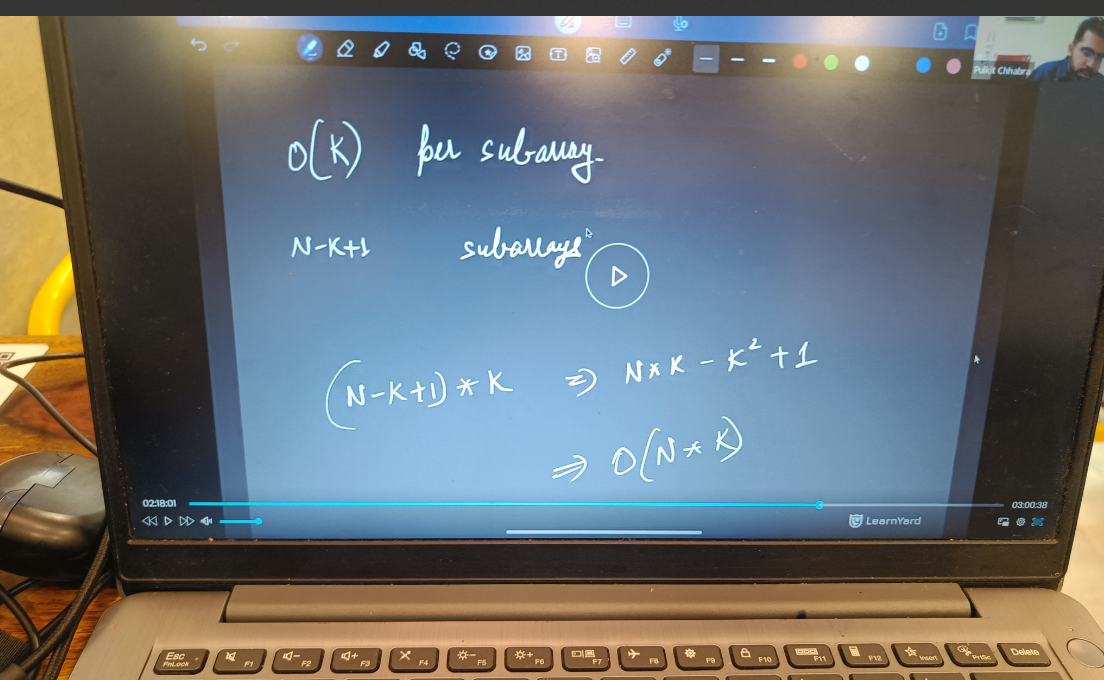 Pulkit Chhabra
O(K) per subarray.
N-K+1 subarrays
(N-K+1) * K => N*K - K² + 1
=> O(N * K)
02:18:01
03:00:38
LearnYard
Esc
FnLock
F1
F2
F3
F4
F5
F6
F7
F8
F9
F10
F11
F12
Insert
PrtSc
Delete